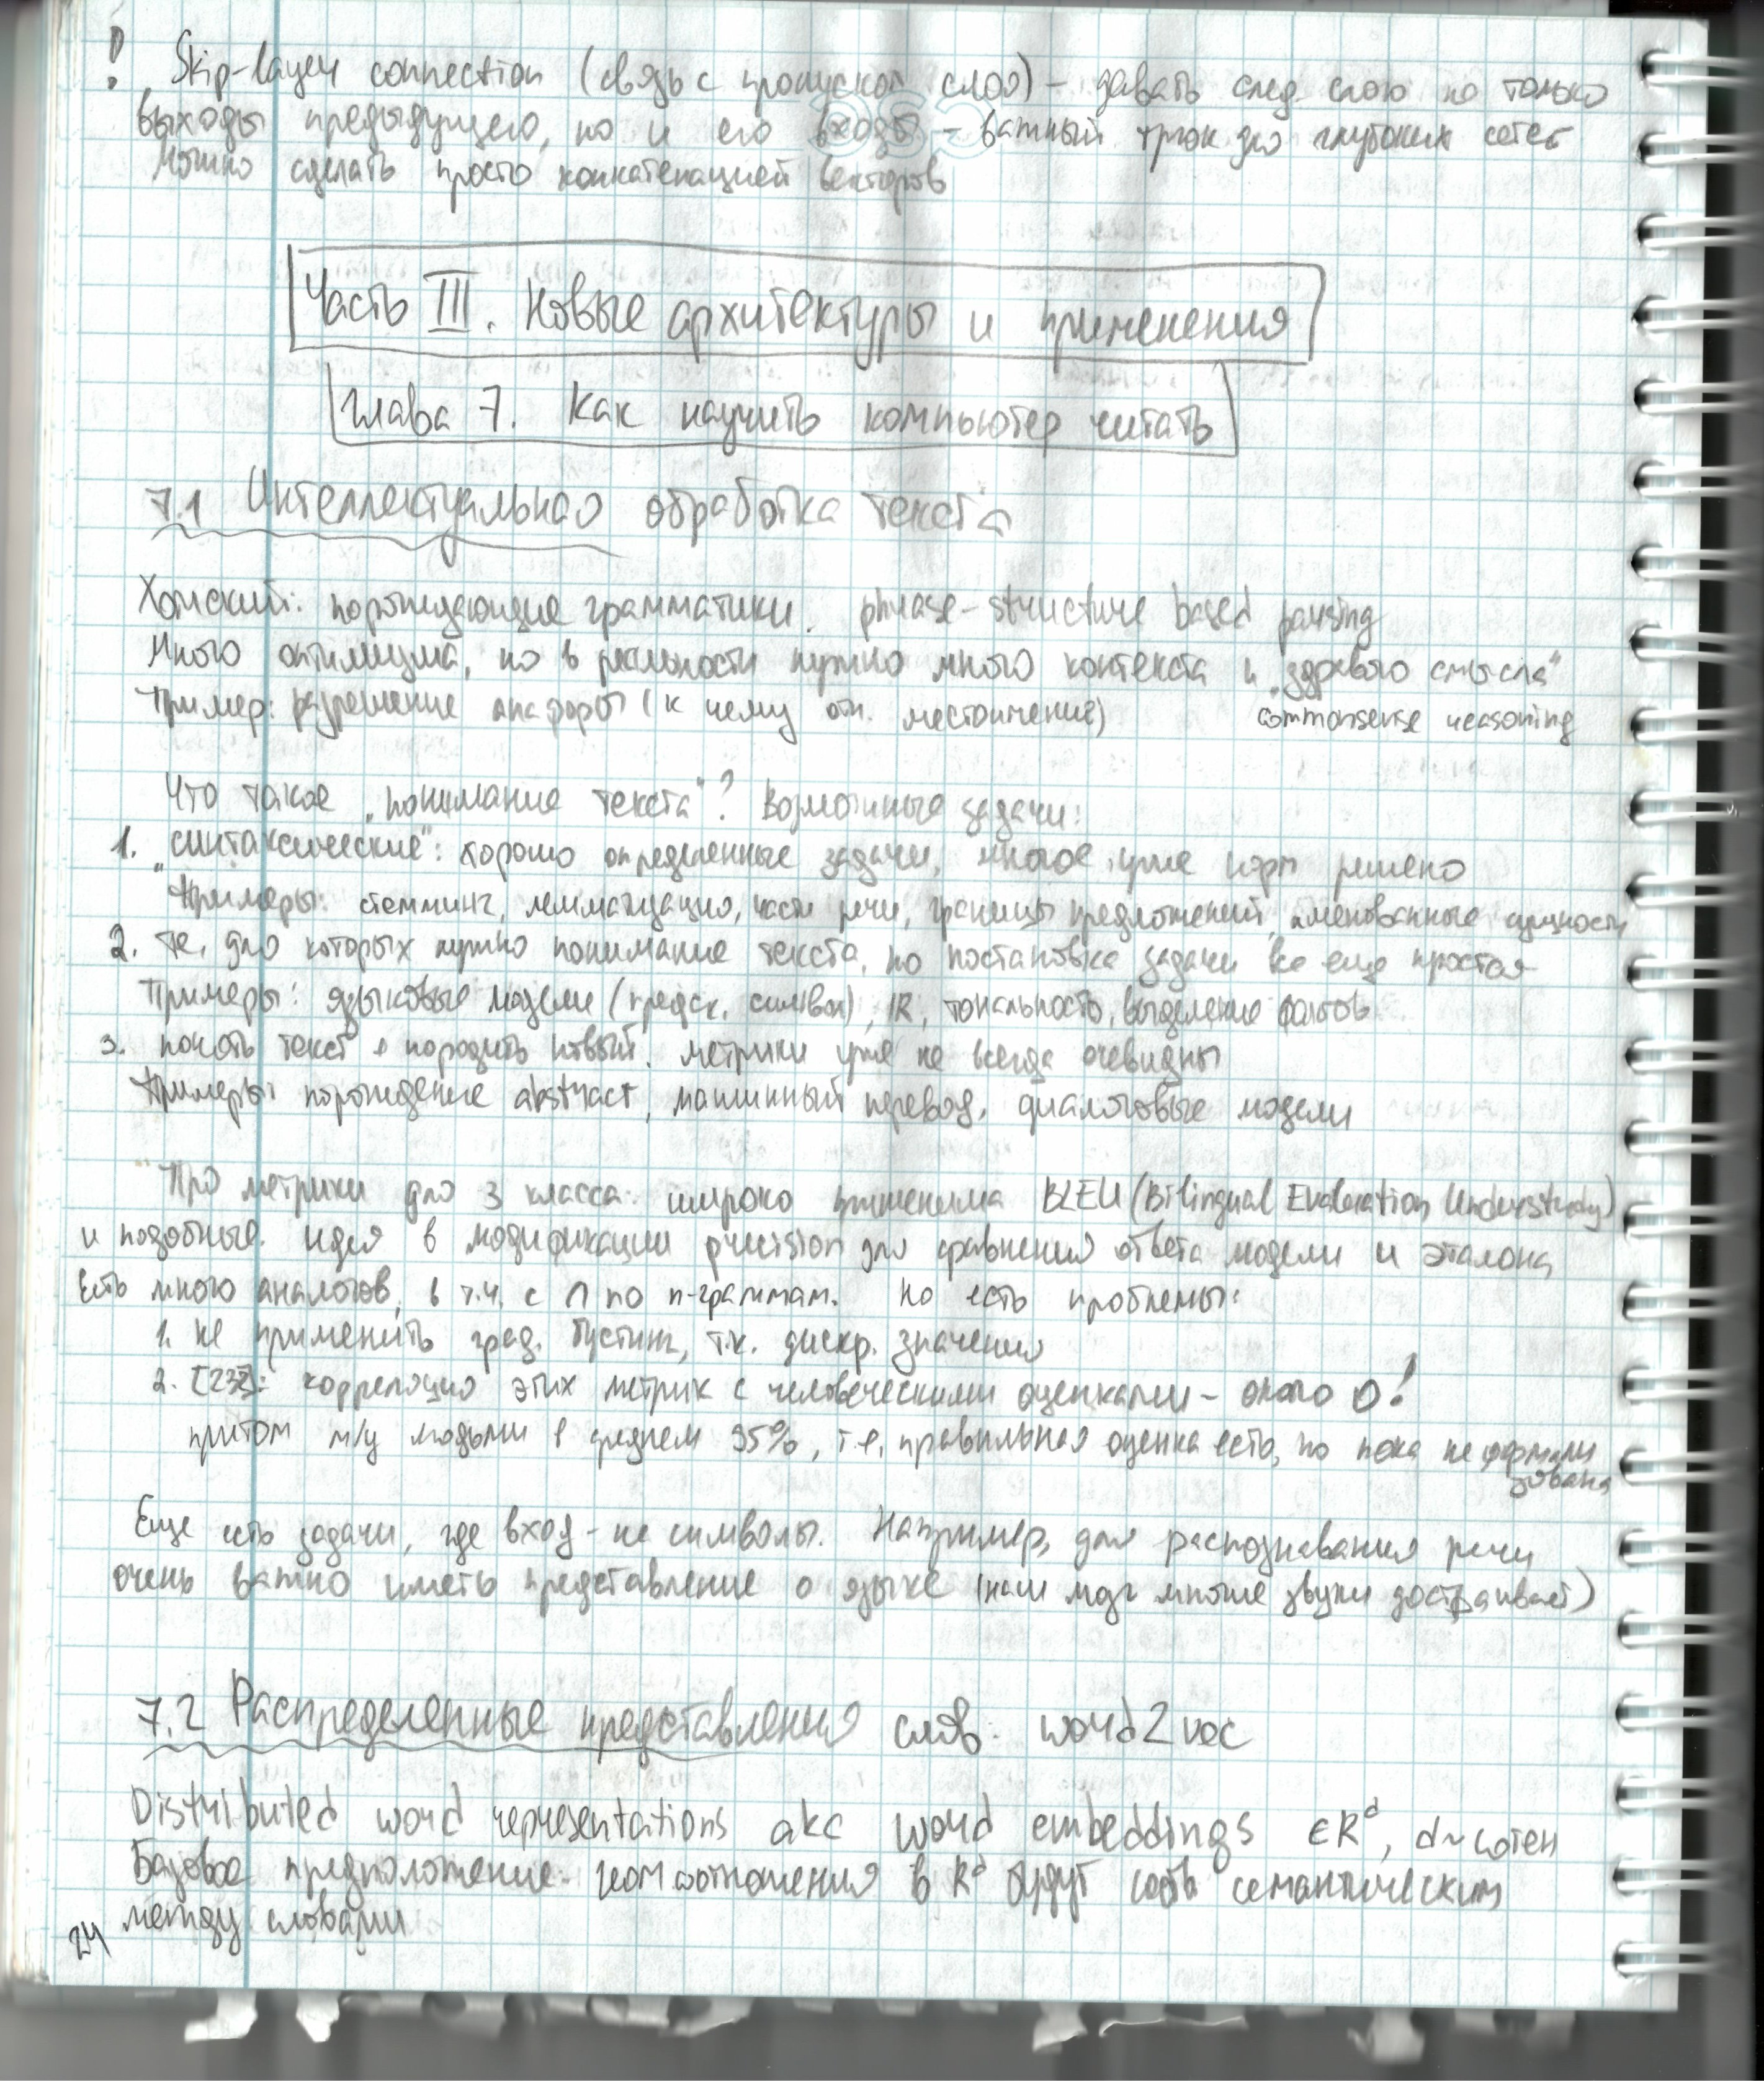 ! Skip-layer connection (связь с пропуском слоя) - давать след. слою не только
выходы предыдущего, но и его входы - важный трюк для глубоких сетей
Можно сделать просто конкатенацией векторов
Часть III. Новые архитектуры и применения
Глава 7. Как научить компьютер читать
7.1 Интеллектуальная обработка текста
Хомский: порождающие грамматики. phrase-structure based parsing
Много оптимизма, но в реальности нужно много контекста и „здравого смысла"
Пример: разрешение анафоры (к чему отн. местоимение) commonsense reasoning
Что такое „понимание текста"? Возможные задачи:
1. „синтаксические": хорошо определенные задачи, многое уже норм решено
Примеры: стемминг, лемматизация, части речи, границы предложений, именованные сущности
2. те, для которых нужно понимание текста, но постановка задачи все еще простая
Примеры: языковые модели (предск. символ), IR, тональность, выделение фактов
3. понять текст и породить новый. метрики уже не всегда очевидны
Примеры: порождение abstract, машинный перевод, диалоговые модели
Про метрики для 3 класса: широко применима BLEU (Bilingual Evaluation Understudy)
и подобные. идея в модификации precision для сравнения ответа модели и эталона
Есть много аналогов, в т.ч. с ∩ по n-граммам. Но есть проблемы:
1. не применить град. бустинг, т.к. дискр. значения
2. [237]: корреляция этих метрик с человеческими оценками - около 0!
притом м/у людьми в среднем 95%, т.е. правильная оценка есть, но пока не формали
зована
Еще есть задачи, где вход - не символы. Например, для распознавания речи
очень важно иметь представление о языке (наш мозг многие звуки достраивает)
7.2 Распределенные представления слов. word2vec
Distributed word representations aka word embeddings ∈R^d, d~сотен
Базовое предположение: геом соотношения в R^d будут соотв семантическим
между словами
24